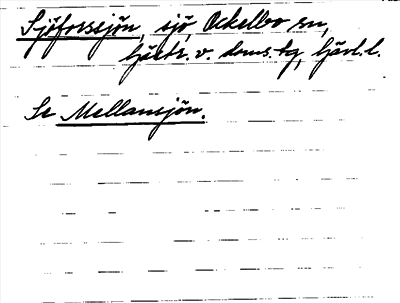 Sjöforssjön, sjö, Ockelbo sn,
Gästr. v. doms.tg, Gävl. l.
Se Mellansjön.